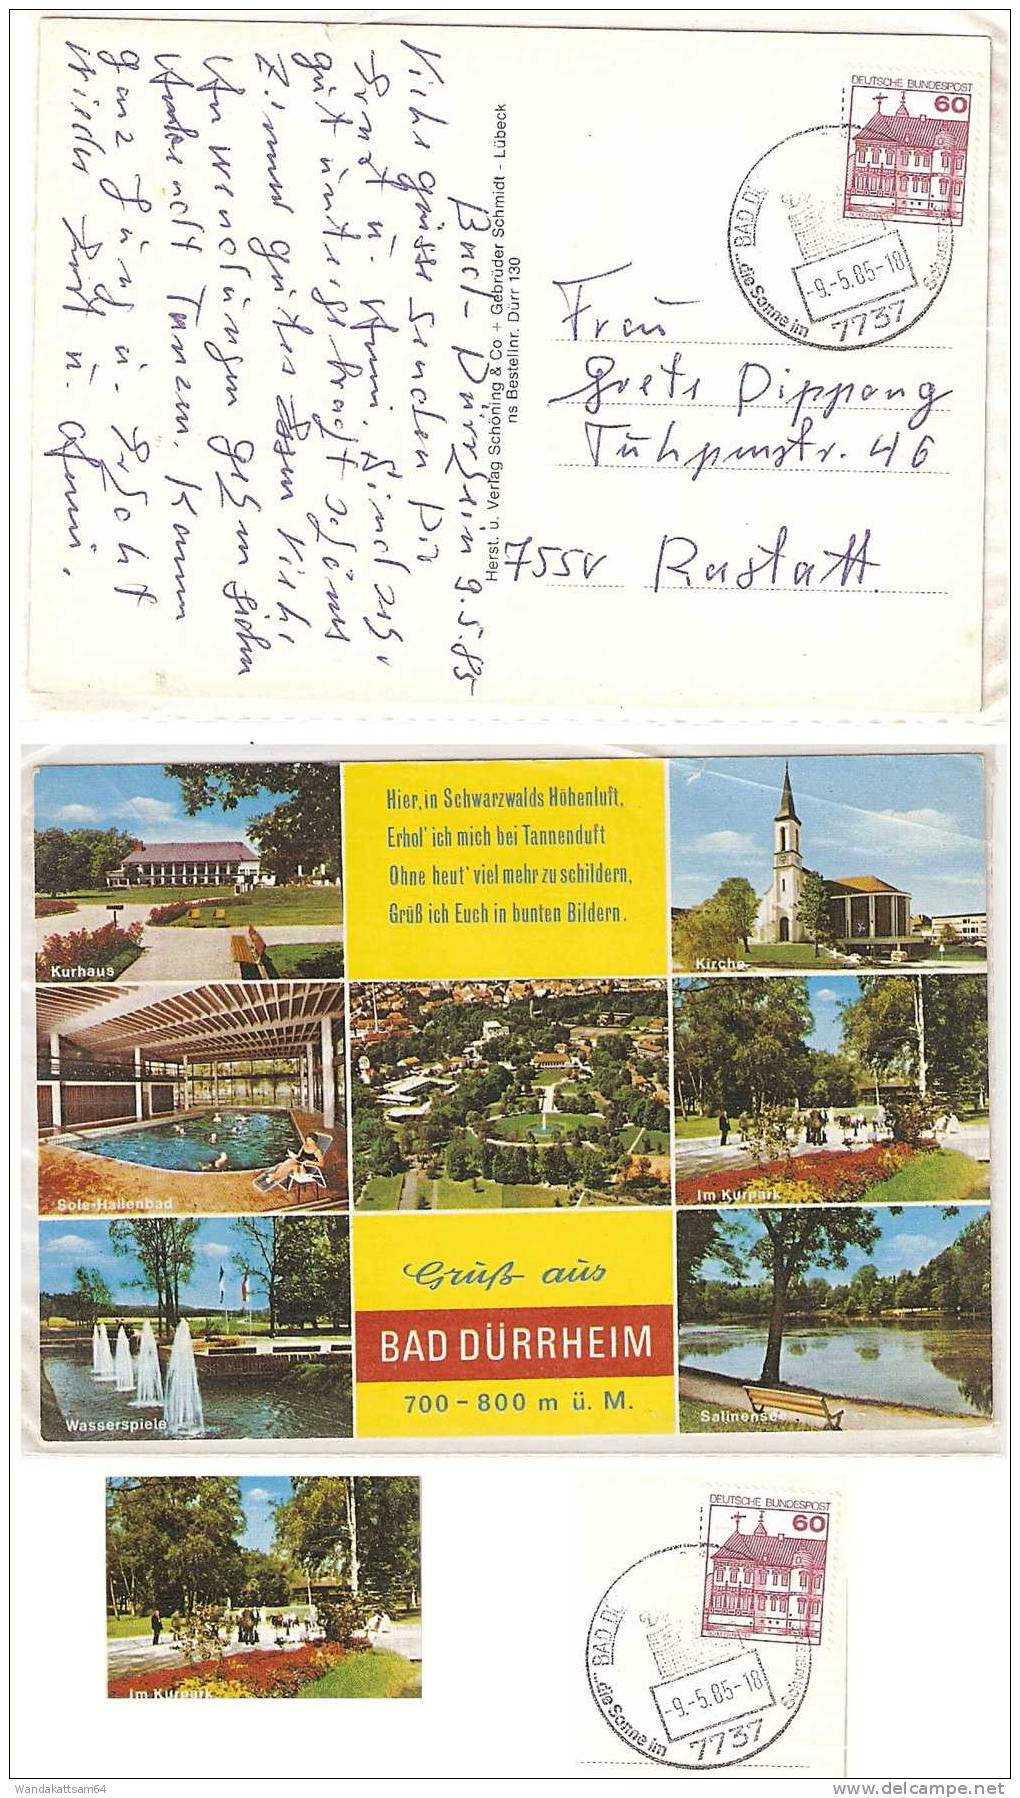 DEUTSCHE BUNDESPOST
60
BAD D
...die Sonne im
Schwarz
-9.-5.85-18
7737
Bad-Dürrheim 9.5.85
Viele Grüsse senden Dir
Ernst u. Anni. Sind sehr
gut untergebracht schönes
Zimmer gutes Essen Viele
Anwendungen gehen sehr
Tanzen. Kann
ganz u. Erholt
wieder u. Anni.
Herst. u. Verlag Schöning & Co + Gebrüder Schmidt - Lübeck
ns Bestellnr. Dürr 130
Frau
Grete Dippong
Tulpenstr. 46
7550 Rastatt
Hier, in Schwarzwalds Höhenluft,
Erhol' ich mich bei Tannenduft
Ohne heut' viel mehr zu schildern,
Grüß ich Euch in bunten Bildern.
Kurhaus
Kirche
Sole-Hallenbad
Im Kurpark
Gruß aus
BAD DÜRRHEIM
700-800 m ü. M.
Wasserspiele
Salinensee
Im Kurpark
DEUTSCHE BUNDESPOST
60
BAD D
...die Sonne im
Schwarz
-9.-5.85-18
7737
Wandakattsam64
www.delcampe.net